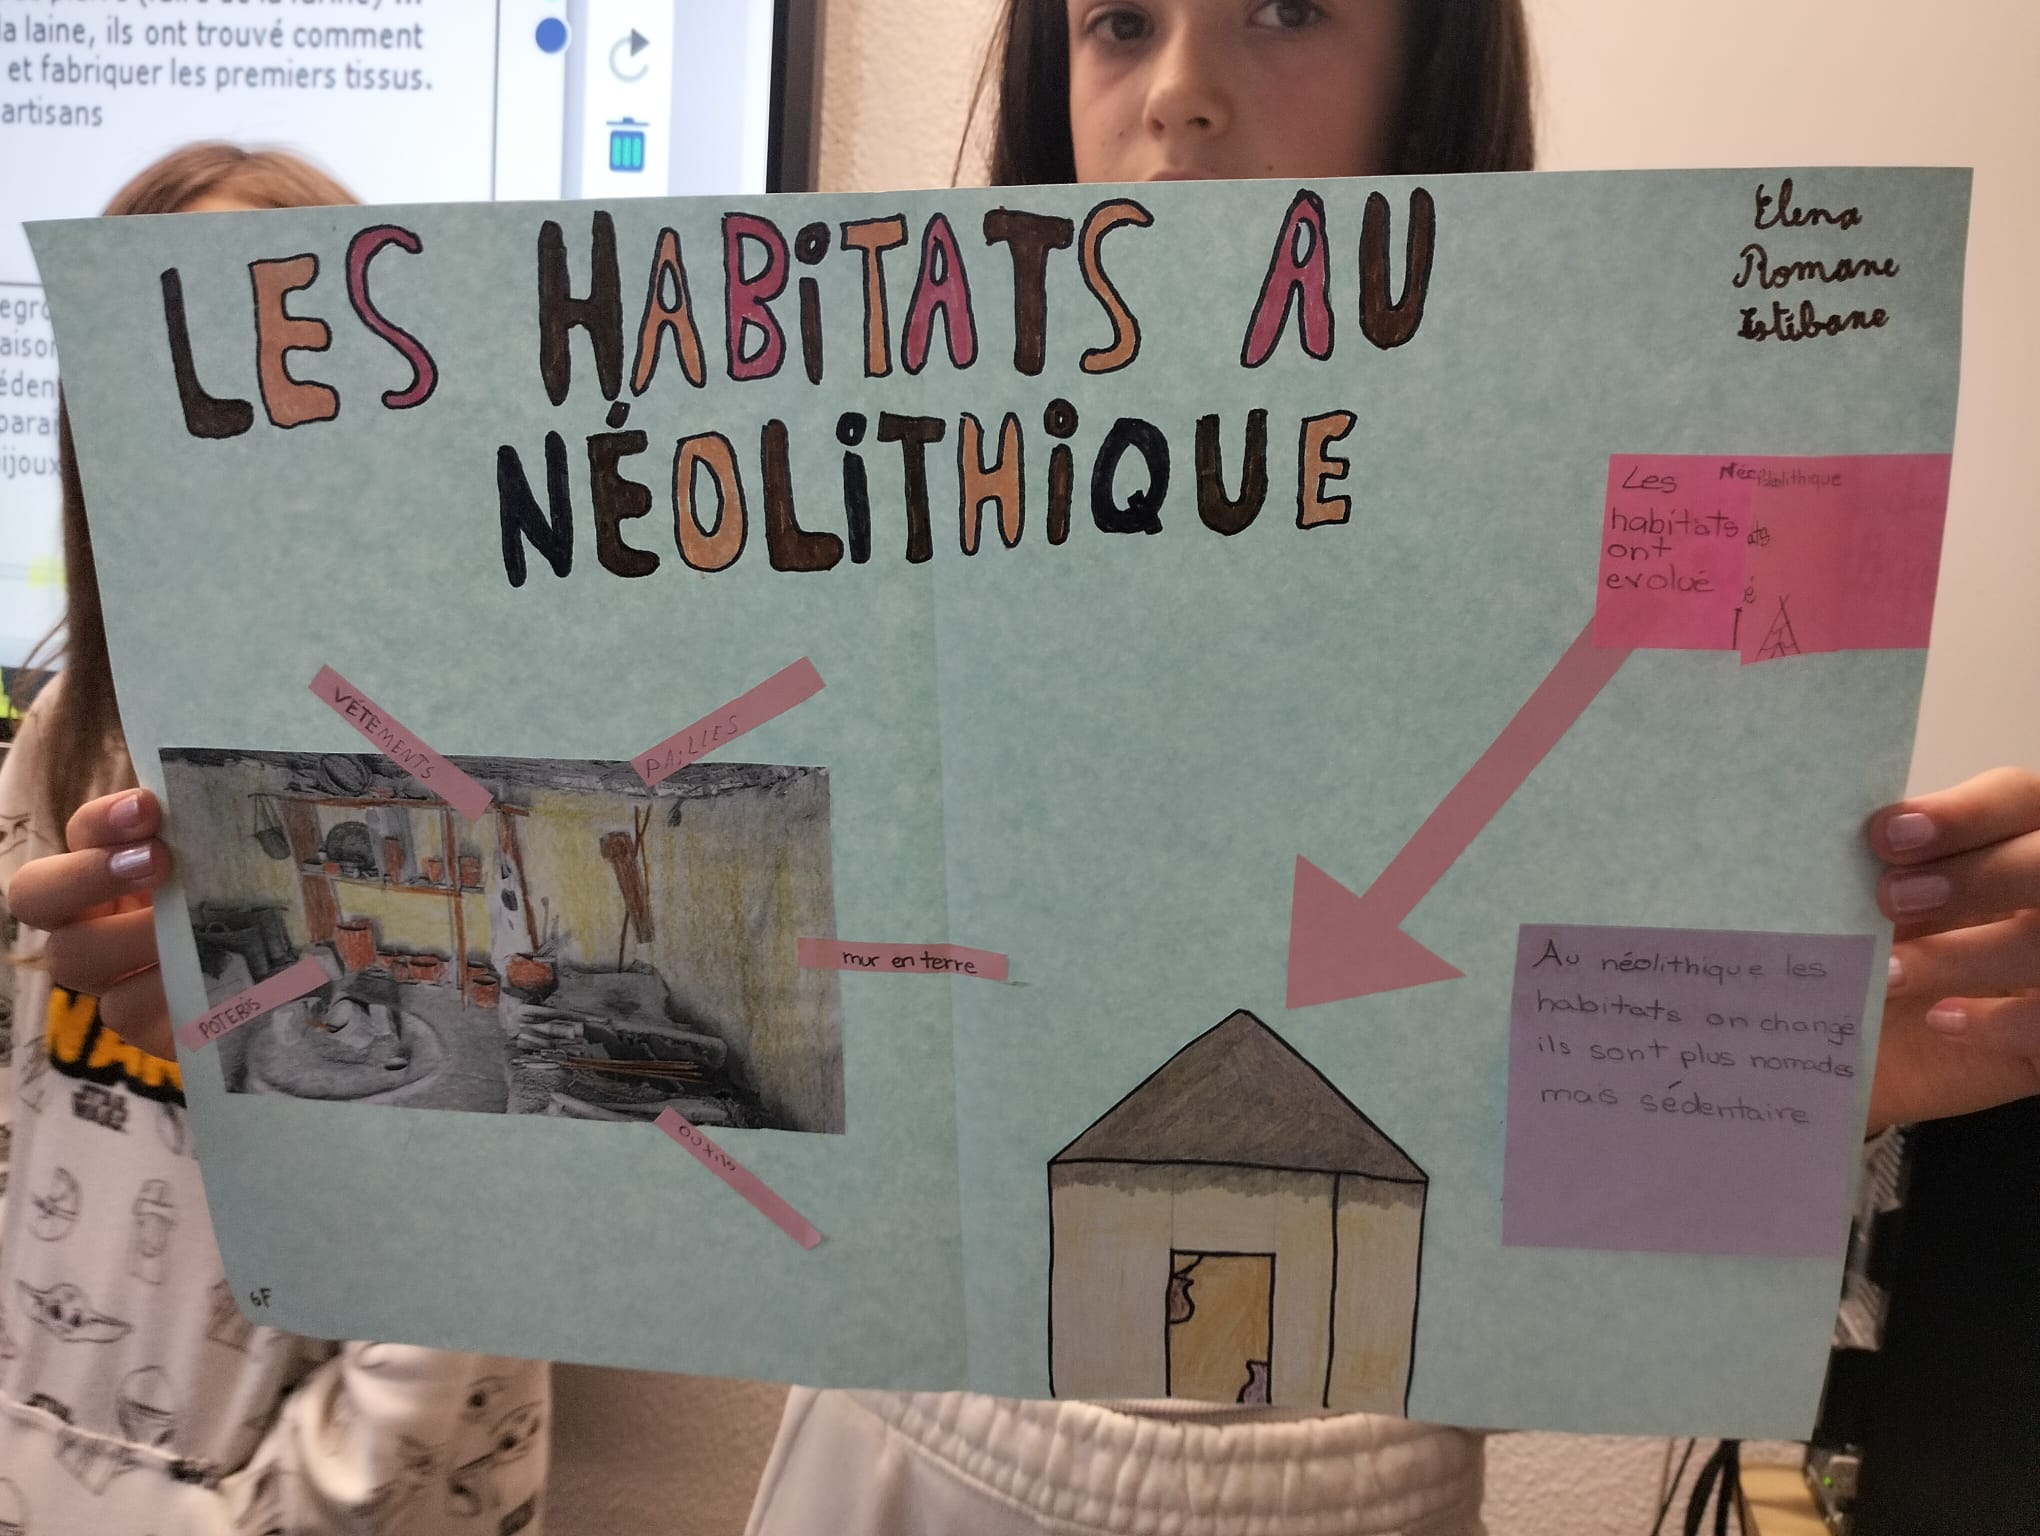 la laine, ils ont trouvé comment
et fabriquer les premiers tissus.
artisans
LES HABiTATS AU
NÉOLiTHiQUE
Elena
Romane
Estibane
Les
habitats
ont
evolué
VETEMENTS
PAiLLES
mur en terre
POTERIS
OUTILS
Au néolithique les
habitats on changé
ils sont plus nomades
mas sédentaire
6F
STAR
WARS